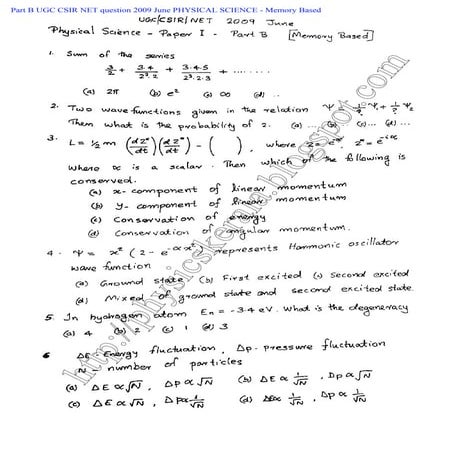 Part B UGC CSIR NET question 2009 June PHYSICAL SCIENCE - Memory Based
UGC/CSIR/NET 2009 June
Physical Science - Paper I - Part B [Memory Based]
1. Sum of the series
3/2 + 3·4/2²·2 + 3·4·5/2³·2·3 + ........
(a) 2π (b) e² (c) ∞ (d) ..
2. Two wave functions given in the relation Ψ = 1/? Ψ₁ + 1/? Ψ₂
Then what is the probability of 2. (a) ... (b) ... (c) ... (d) ...
3. L = ½ m (dZ*/dt)(dZ*/dt) - ( ), where Z = , Z* = e^-iα
where α is a scalar. Then which of the following is
conserved.
(a) x- component of linear momentum
(b) y- component of linear momentum
(c) Conservation of energy
(d) Conservation of angular momentum.
4. Ψ = x² (2 - e^-αx²) represents Harmonic oscillator
wave function
(a) Ground state (b) First excited (c) Second excited
(d) Mixed of ground state and second excited state.
5. In hydrogen atom En = -3.4 eV. What is the degeneracy
(a) 4 (b) 2 (c) 1 (d) 3
6 ΔE - Energy fluctuation, Δp - pressure fluctuation
N - number of particles
(a) ΔE ∝ √N, Δp ∝ √N (b) ΔE ∝ 1/√N, Dp ∝ √N
(c) ΔE ∝ √N, Δp ∝ 1/√N (d) ΔE ∝ 1/√N, Δp ∝ 1/√N
http://physicskerala.blogspot.com